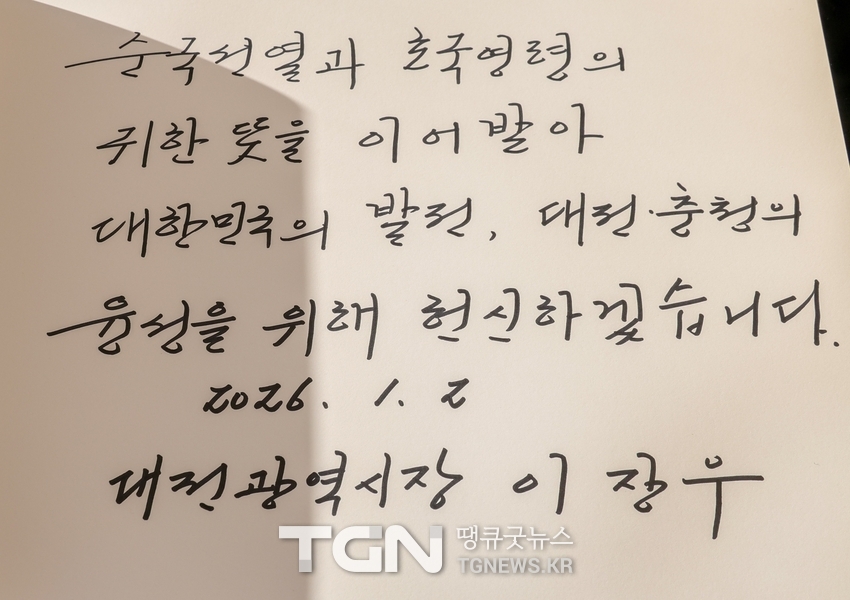 순국선열과 호국영령의
귀한 뜻을 이어받아
대한민국의 발전, 대전·충청의
융성을 위해 헌신하겠습니다.
2026. 1. 2
대전광역시장 이 장 우
TGN 땡큐굿뉴스
TGNEWS.KR